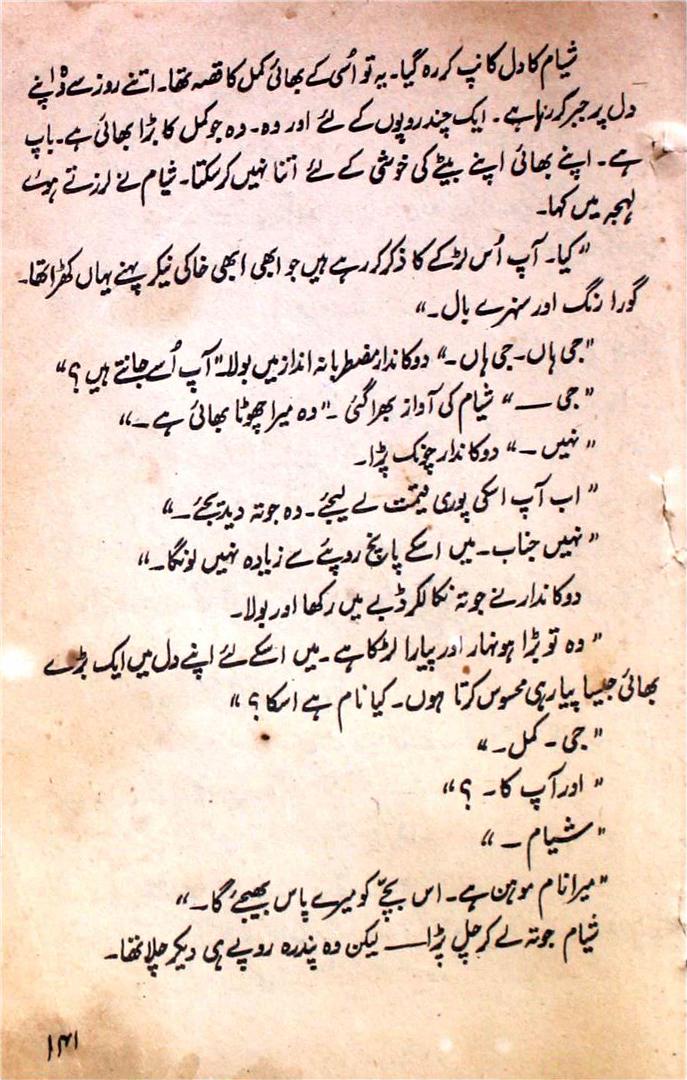 شیام کا دل کانپ کر رہ گیا۔ یہ تو اُسی کے بھائی کمل کا قصہ تھا۔ اتنے روز سے وہ اپنے
دل پر جبر کر رہا ہے۔ ایک چند روپوں کے لئے اور وہ۔ وہ جو کمل کا بڑا بھائی ہے۔ باپ
ہے۔ اپنے بھائی اپنے بیٹے کی خوشی کے لئے اتنا نہیں کر سکتا۔ شیام نے لرزتے ہوئے
لہجہ میں کہا۔
"کیا۔ آپ اُس لڑکے کا ذکر کر رہے ہیں جو ابھی ابھی خاکی نیکر پہنے یہاں کھڑا تھا۔
گورا رنگ اور سنہرے بال۔"
"جی ہاں۔ جی ہاں۔" دوکاندار مضطربانہ انداز میں بولا۔ "آپ اُسے جانتے ہیں؟"
"جی ــ" شیام کی آواز بھرا گئی۔ "وہ میرا چھوٹا بھائی ہے۔"
"نہیں ــ" دوکاندار چونک پڑا۔
"اب آپ اسکی پوری قیمت لے لیجئے۔ وہ جوتہ دیدیجئے۔"
"نہیں جناب۔ میں اسکے پانچ روپئے سے زیادہ نہیں لونگا۔"
دوکاندار نے جوتہ نکالکر ڈبے میں رکھا اور بولا۔
"وہ تو بڑا ہونہار اور پیارا لڑکا ہے۔ میں اسکے لئے اپنے دل میں ایک بڑے
بھائی جیسا پیار ہی محسوس کرتا ہوں۔ کیا نام ہے اسکا؟"
"جی۔ کمل۔"
"اور آپ کا۔ ؟"
"شیام ــ"
"میرا نام موہن ہے۔ اس بچّے کو میرے پاس بھیجئے گا۔"
شیام جوتہ لے کر چل پڑا ــــ لیکن وہ پندرہ روپے ہی دیکر چلا تھا۔
۱۴۱